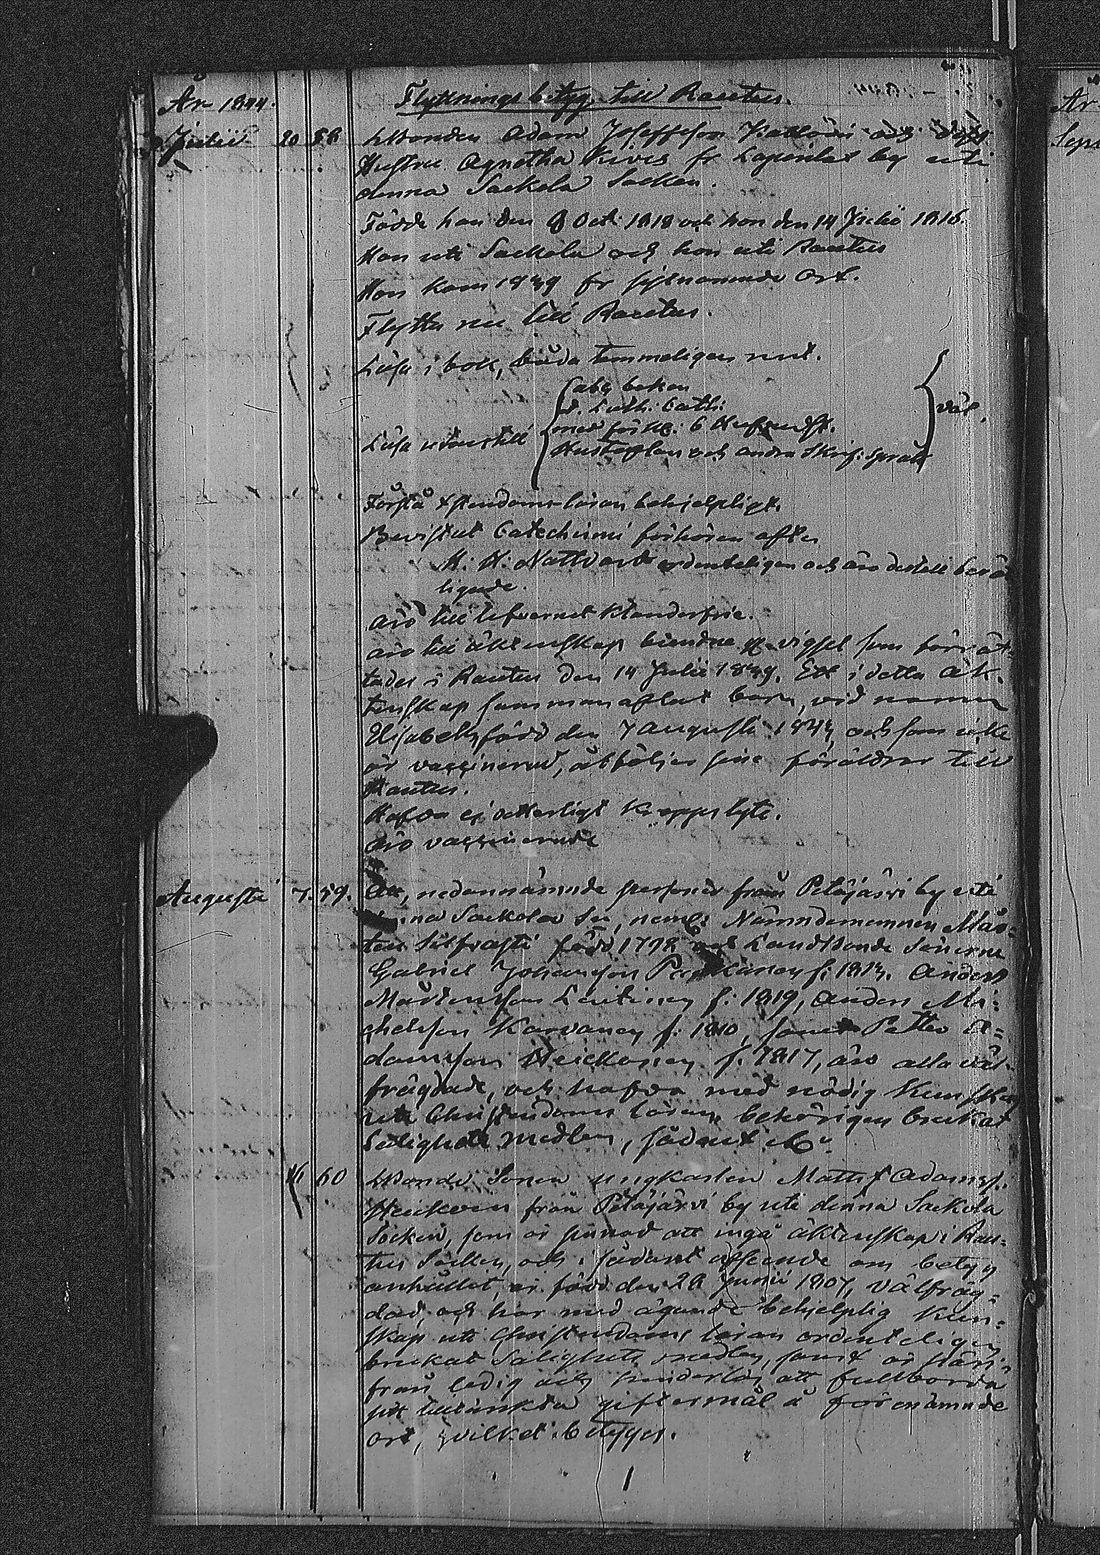 År 1844. Flyttnings betyg till Rautus.
Julii 20 58 Bonden Adam Joseffsson och dess
Hustru Agnetha Kives fr Lapinlax by uti
denna Sackola Socken.
Födde han den 9 Oct: 1818 och hon den 14 Julii 1816.
Han uti Sackola och hon uti Rautus
Hon kom 1839 fr sistnämnde Ort.
Flytta nu till Rautus.
Läsa i bok, båda temmeligen rent.
abc boken
d. Luth: Cath:
Läsa utantill med förkl:
Hustaflan och andra Skrif: språk väl.
Förstå Xstendoms läran behjelpligt.
Bevistat Catechismi förhören ofta
H. H. Nattvard ordenteligen och äro dertill berät
tigade.
Äro till lefvernet klanderfrie.
Äro till äktenskap vigsel som förrät-
tades i Rautus den 14 Julii 1839. Ett i detta äk-
tenskap sammanaflat barn, vid namn
Elisabeth, född den 7 Augusti 1843, och som icke
är vaccinerad, åtföljer sine föräldrar till
Rautus.
Hafva ej vetterligt kroppslyte.
Äro vaccinerade
Augusti 7. 59. Att, nedannämnde personer från Petäjärvi by uti
denna Sackola Sn, neml: Nämndemannen Mår-
ten född 1798 och Landbonde Sönerne
Gabriel Johansson f: 1813. Anders
Mårtensson f: 1819, Anders Mi-
chelsson Karvanen f: 1810 samt Petter A-
damsson Heickonen f. 1817, äro alla väl-
frägdade, och hafva med nödig Kunskap
uti Christendoms läran, behörigen brukat
Salighets medlen, sådant &c.
16 60 Bonde Sonen ungkarlen Matts Adamss:
Heikonen från Petäjärvi by uti denna Sackola
Socken, som är sinnad att ingå äktenskap i Rau-
tus Socken, och i sådant afseende om betyg
anhållit, är född den 28 Junii 1807, välfräg-
dad, och har med ägande behjelplig Kun-
skap uti Christendoms läran ordenteligen
brukat Salighets medlen, samt är häri-
från ledig och hinderlös att fullborda
sitt tilltänkta giftermål å förenämnde
ort, hvilket betygas.